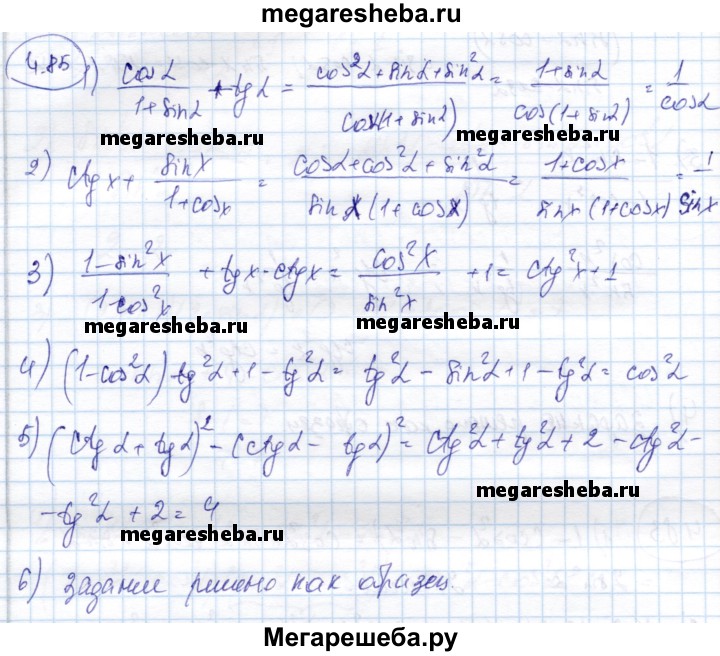 megaresheba.ru
4.85 1) cosα/(1+sinα) + tgα = (cos²α+sinα+sin²α)/(cosα(1+sinα)) = (1+sinα)/(cos(1+sinα)) = 1/cosα
megaresheba.ru megaresheba.ru
2) ctgx + sinx/(1+cosx) = (cosα+cos²α+sin²α)/(sinx(1+cosx)) = (1+cosx)/(sinx(1+cosx)) = 1/sinx
3) (1-sin²x)/(1-cos²x) + tgx·ctgx = cos²x/sin²x + 1 = ctg²x+1
megaresheba.ru megaresheba.ru
4) (1-cos²α)tg²α+1-tg²α = tg²α-sin²α+1-tg²α = cos²α
5) (ctgα+tgα)²-(ctgα-tgα)² = ctg²α+tg²α+2-ctg²α-
megaresheba.ru
-tg²α+2=4
megaresheba.ru
6) Задание решено как образец.
Мегарешеба.ру